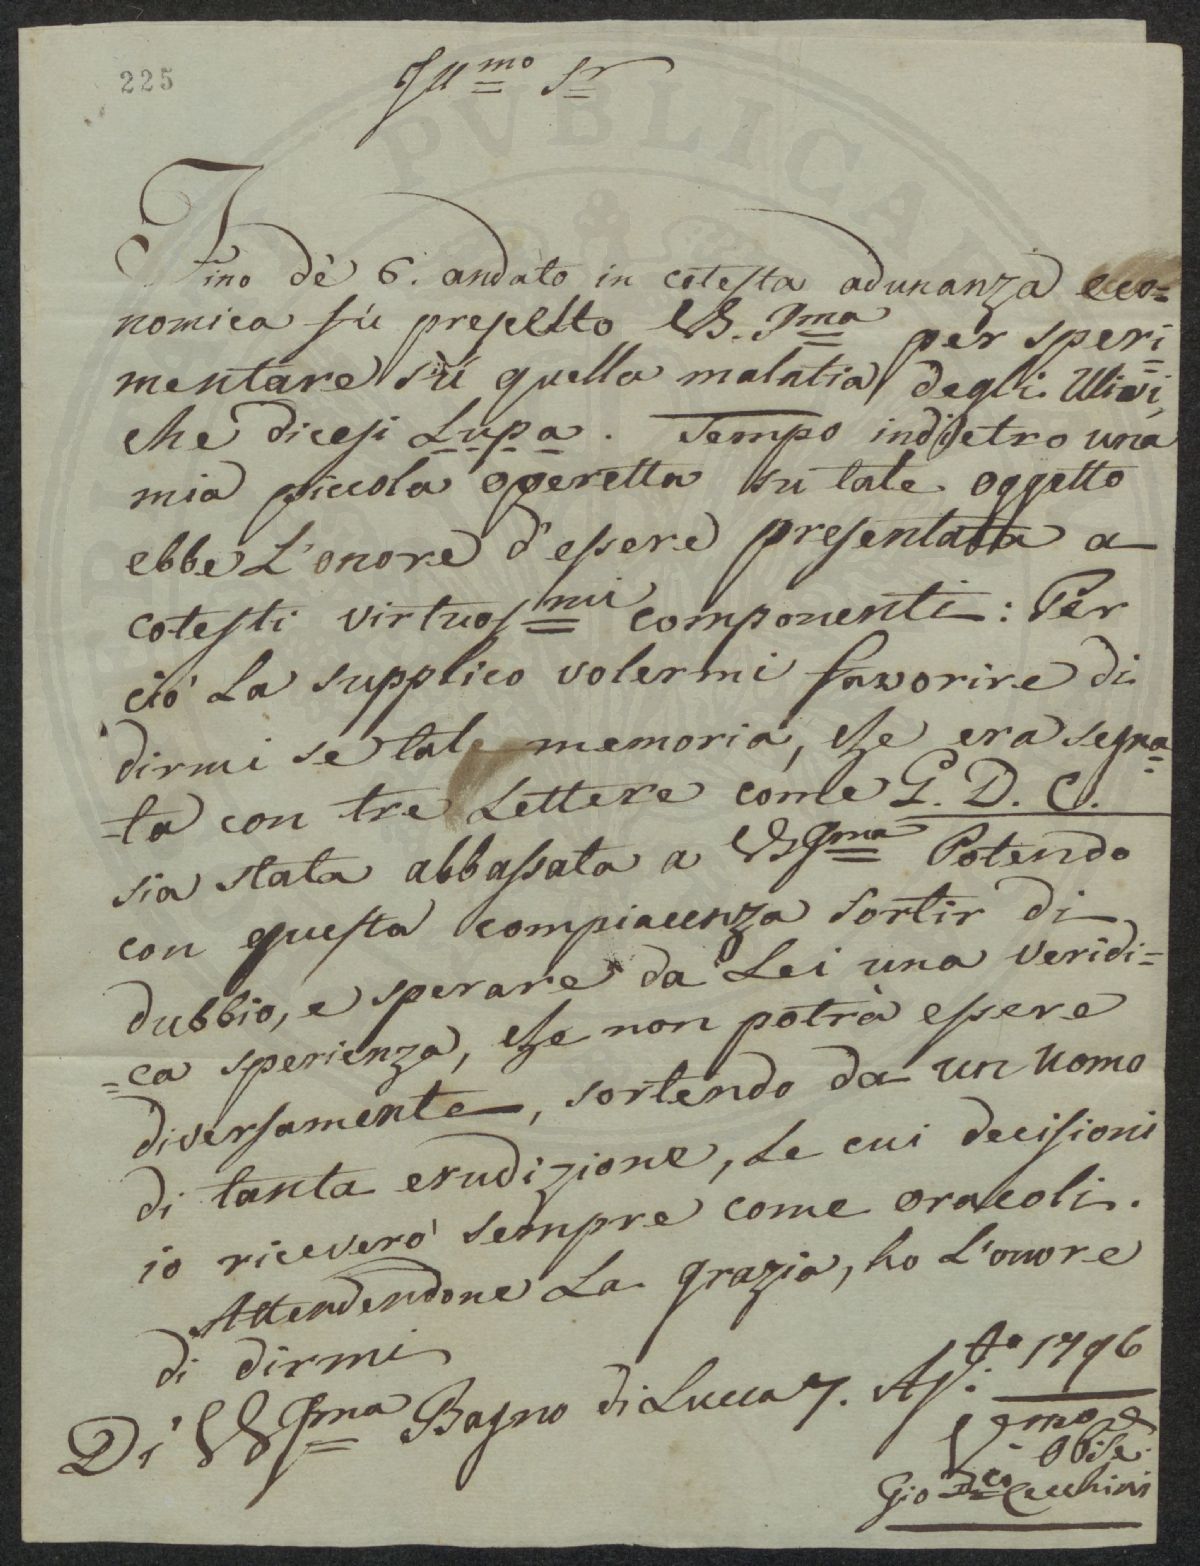 225
Ill.mo Sr
Fino dè 6. andato in cotesta adunanza eco=
nomica fù prescelto VS. Ill.ma per speri=
mentare sù quella malatia degli Ulivi,
che dicesi Lupa. Tempo indietro una
mia piccola operetta su tale oggetto
ebbe L'onore d'essere presentata a
cotesti virtuosmi componenti: Per
ciò La supplico volermi favorire di
dirmi se tale memoria, che era segna=
=ta con tre Lettere come G. D. C.
sia stata abbassata a VS Ill.ma Potendo
con questa compiacenza sortir di
dubbio, e sperare da Lei una veridi=
=ca sperienza, che non potrà essere
diversamente, sortendo da un Uomo
di tanta erudizione, Le cui decisioni
io riceverò sempre come oracoli.
Attendendone La grazia, ho L'onore
di dirmi
Di VS Ill.ma Bagno di Lucca 7. Ag.to 1796
Gio Dco Cecchini
PVBLICA